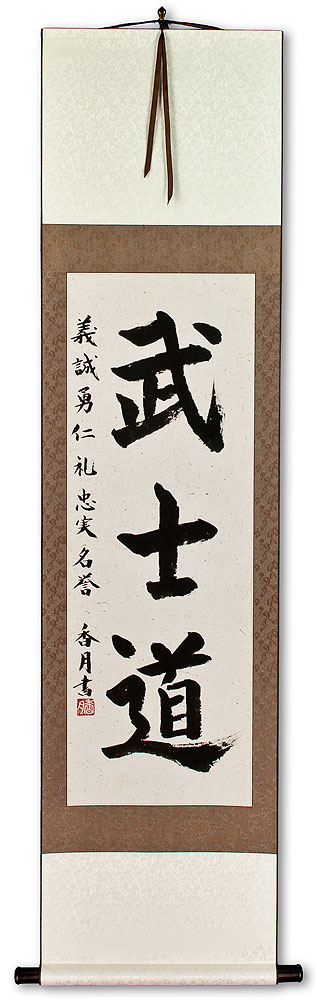 武士道
義誠勇仁礼忠実名誉 香月書